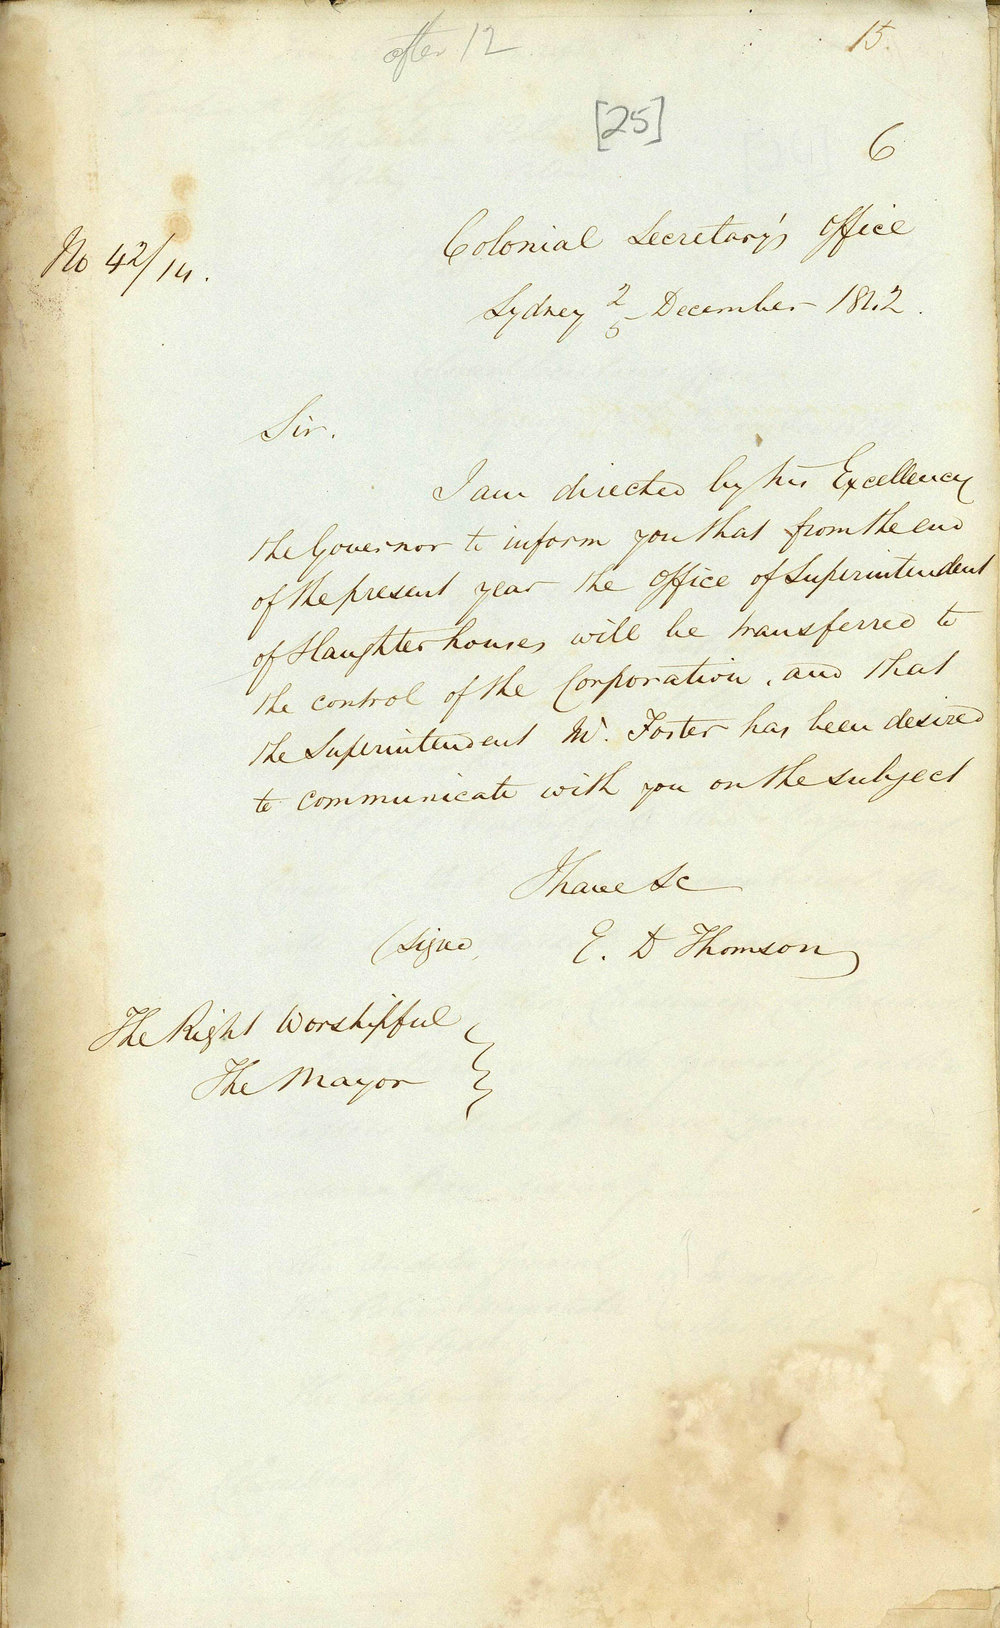 after 12
15.
[25]
6
No 42/14.
Colonial Secretary's Office
Sydney 2 December 1842.
5
Sir.
I am directed by his Excellency
the Governor to inform you that from the end
of the present year the Office of Superintendent
of Slaughter houses will be transferred to
the control of the Corporation, and that
the Superintendent Mr. Foster has been desired
to communicate with you on the subject
I have &c
(signed E. D Thomson
The Right Worshipful
The Mayor